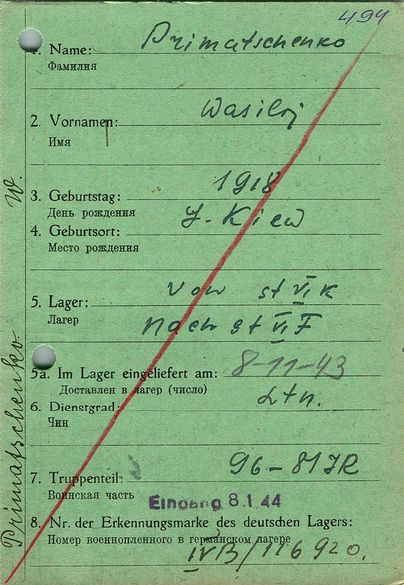 494
1. Name: Primatschenko
Фамилия
2. Vornamen: Wasilij
Имя
3. Geburtstag: 1918
День рождения
4. Geburtsort: g. Kiew
Место рождения
5. Lager: von st VI K
Лагер
nach st VI F
5a. Im Lager eingeliefert am: 8-11-43
Доставлен в лагер (число)
6. Dienstgrad: Ltn.
Чин
7. Truppenteil: 96-81 IR
Воинская часть
Eingang 8.1.44
8. Nr. der Erkennungsmarke des deutschen Lagers:
Номер военнопленного в германском лагере
IV B/116920.
Primatschenko W.